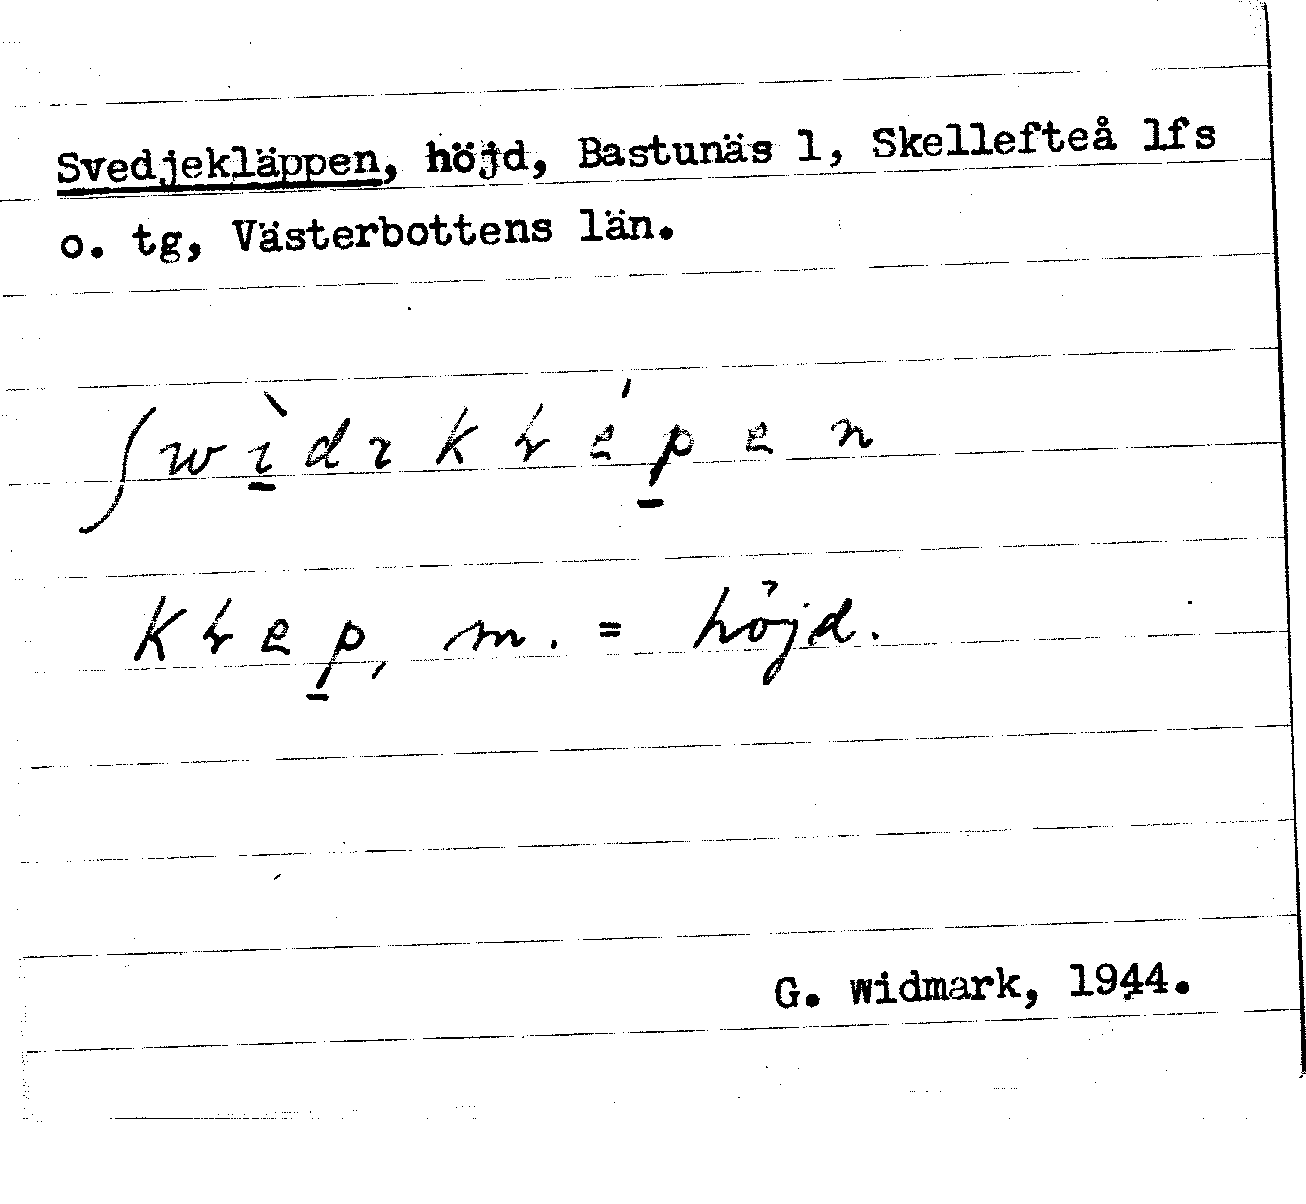 Svedjekläppen, höjd, Bastunäs 1, Skellefteå lfs
o. tg, Västerbottens län.
= höjd.
G. Widmark, 1944.